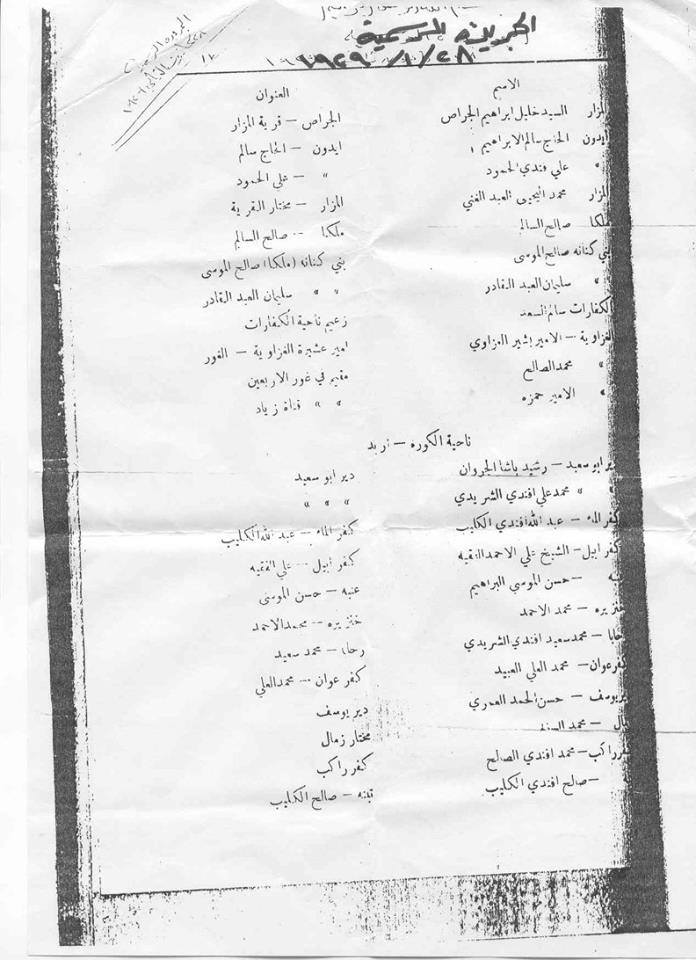 الجريده الرسمية
١٩٢٩/١/٢٨
الاسم العنوان
المزار السيد خليل ابراهيم الجراص الجراص – قرية المزار
ايدون الحاج سالم الابراهيم ايدون – الحاج سالم
" علي فندي الحمود " – علي الحمود
المزار محمد اليحيى العبد الغني المزار – مختار القرية
ملكا صالح السالم ملكا – صالح السالم
بني كنانه صالح الموسى بني كنانه (ملكا) صالح الموسى
" سليمان العبد القادر " " سليمان العبد القادر
الكفارات سالم السعد زعيم ناحية الكفارات
الغزاوية – الامير بشير الغزاوي امير عشيرة الغزاوية – الغور
" محمد الصالح مقيم في غور الاربعين
" الامير حمزه " " قناة زياد
ناحية الكوره – اربد
دير ابو سعيد – رشيد باشا الجروان دير ابو سعيد
" " محمد علي افندي الشريدي " " "
كفر الماء – عبد الله افندي الكليب كفر الماء – عبد الله الكليب
كفر ابيل – الشيخ علي الاحمد الفقيه كفر ابيل – علي الفقيه
عنبه – حسن الموسي البراهيم عنبه – حسن الموسى
خنزيره – محمد الاحمد خنزيره – محمد الاحمد
رحابا – محمد سعيد افندي الشريدي رحابا – محمد سعيد
كفر عوان – محمد العلي العبيد كفر عوان – محمد العلي
دير يوسف – حسن الحمد العمري دير يوسف
زمال – محمد مختار زمال
كفر راكب – محمد افندي الصالح كفر راكب
– صالح افندي الكليب تبنه – صالح الكليب